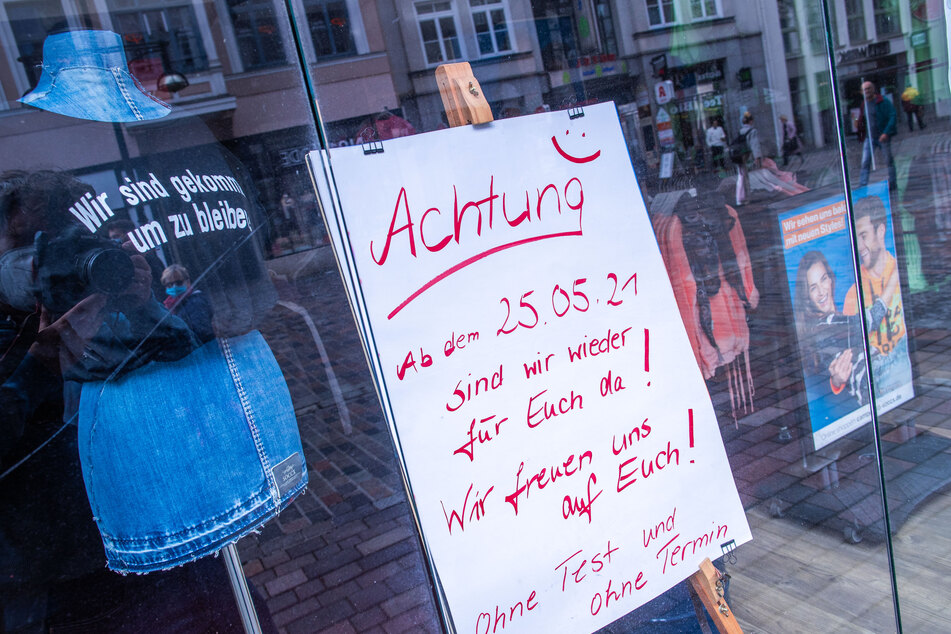 Wir sind gekomm
um zu bleiben
Achtung
Ab dem 25.05.21
sind wir wieder
für Euch da!
Wir freuen uns
auf Euch!
Ohne Test und
ohne Termin
Wir sehen uns bald
mit neuen Styles!